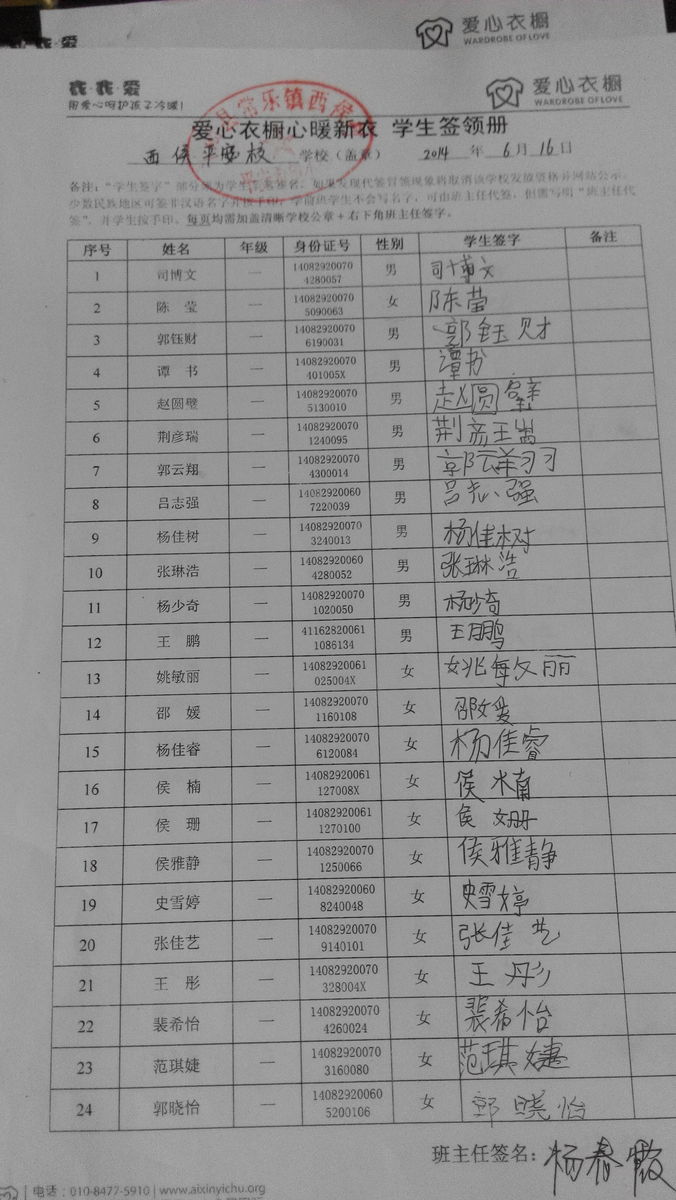 爱心衣橱
WARDROBE OF LOVE
我·我·爱
用爱心呵护孩子冷暖!
爱心衣橱
WARDROBE OF LOVE
爱心衣橱心暖新衣 学生签领册
常乐镇西侯
西侯平安校 学校(盖章) 2014 年 6月16日
备注:“学生签字”部分须为学生亲笔签名,如果发现代签冒领现象将取消该学校发放资格并网站公示。
少数民族地区可签非汉语名字并按手印,学前班学生不会写名字,可由班主任代签,但需写明“班主任代
签”,并学生按手印。每页均需加盖清晰学校公章+右下角班主任签字。
序号 姓名 年级 身份证号 性别 学生签字 备注
1 司博文 一 140829200704280057 男 司博文
2 陈 莹 一 140829200705090063 女 陈莹
3 郭钰财 一 140829200706190031 男 郭钰财
4 谭 书 一 14082920070401005X 男 谭书
5 赵圆璧 一 140829200705130010 男 赵圆璧
6 荆彦瑞 一 140829200701240095 男 荆彦瑞
7 郭云翔 一 140829200704300014 男 郭云翔
8 吕志强 一 140829200607220039 男 吕志强
9 杨佳树 一 140829200703240013 男 杨佳树
10 张琳浩 一 140829200604280052 男 张琳浩
11 杨少奇 一 140829200701020050 男 杨少奇
12 王 鹏 一 411628200611086134 男 王鹏
13 姚敏丽 一 14082920061025004X 女 姚敏丽
14 邵 媛 一 140829200701160108 女 邵媛
15 杨佳睿 一 140829200706120084 女 杨佳睿
16 侯 楠 一 14082920061127008X 女 侯楠
17 侯 珊 一 140829200611270100 女 侯姗
18 侯雅静 一 140829200701250066 女 侯雅静
19 史雪婷 一 140829200608240048 女 史雪婷
20 张佳艺 一 140829200709140101 女 张佳艺
21 王 彤 一 14082920070328004X 女 王彤
22 裴希怡 一 140829200704260024 女 裴希怡
23 范琪婕 一 140829200703160080 女 范琪婕
24 郭晓怡 一 140829200605200106 女 郭晓怡
班主任签名: 杨春霞
电话:010-8477-5910 | www.aixinyichu.org